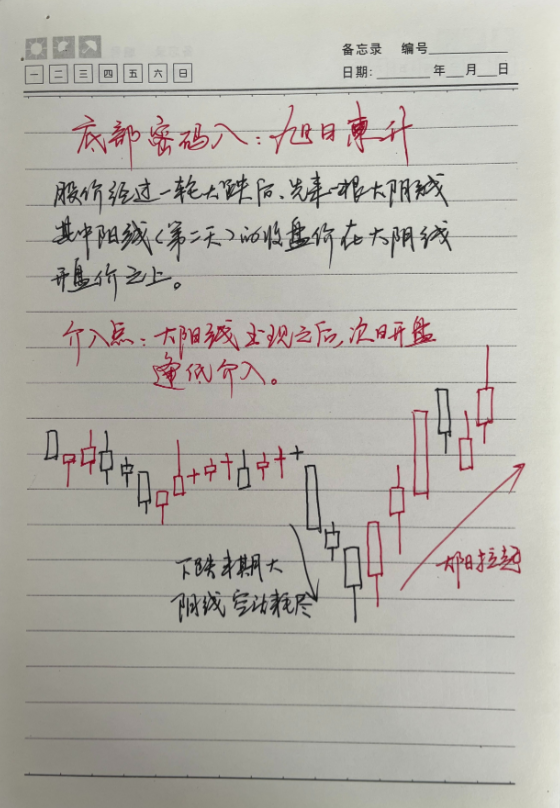 备忘录 编号
一 二 三 四 五 六 日
日期: 年 月 日
底部密码八：旭日東升
股价经过一轮大跌后、先来一根大阴线
其中阳线（第二天）的收盘价在大阴线
开盘价之上。
介入点：大阳线出现之后，次日开盘
逢低介入。
下跌末期大
阴线空头耗尽
大阳拉起